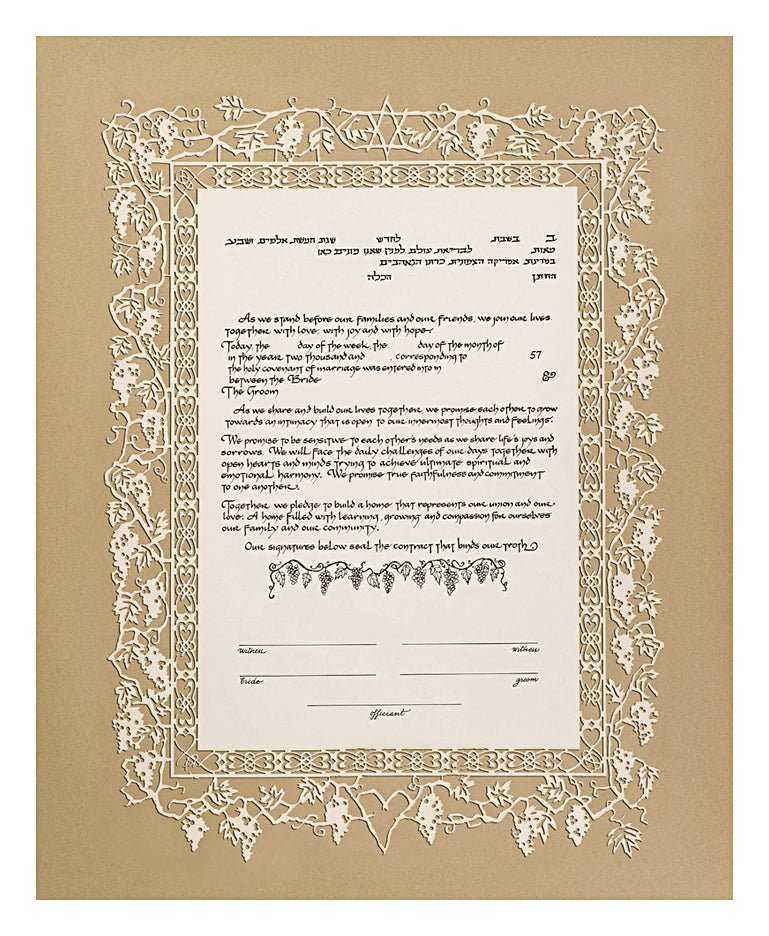 ב בשבת, לחדש שנת חמשת אלפים, ושבע
מאות, לבריאת עולם, למנין שאנו מונים כאן
במדינת אמריקה הצפונית, כרתו הנאהבים
החתן הכלה
As we stand before our families and our friends, we join our lives
together with love, with joy and with hope.
Today, the day of the week, the day of the month of
in the year two thousand and , corresponding to 57
the holy covenant of marriage was entered into in
between the Bride &
The Groom
As we share and build our lives together, we promise each other to grow
towards an intimacy that is open to our innermost thoughts and feelings.
We promise to be sensitive to each other's needs as we share life's joys and
sorrows. We will face the daily challenges of our days together with
open hearts and minds trying to achieve ultimate spiritual and
emotional harmony. We promise true faithfulness and commitment
to one another.
Together we pledge to build a home that represents our union and our
love. A home filled with learning, growing and compassion for ourselves
our family and our community.
Our signatures below seal the contract that binds our troth
witness witness
bride groom
officiant